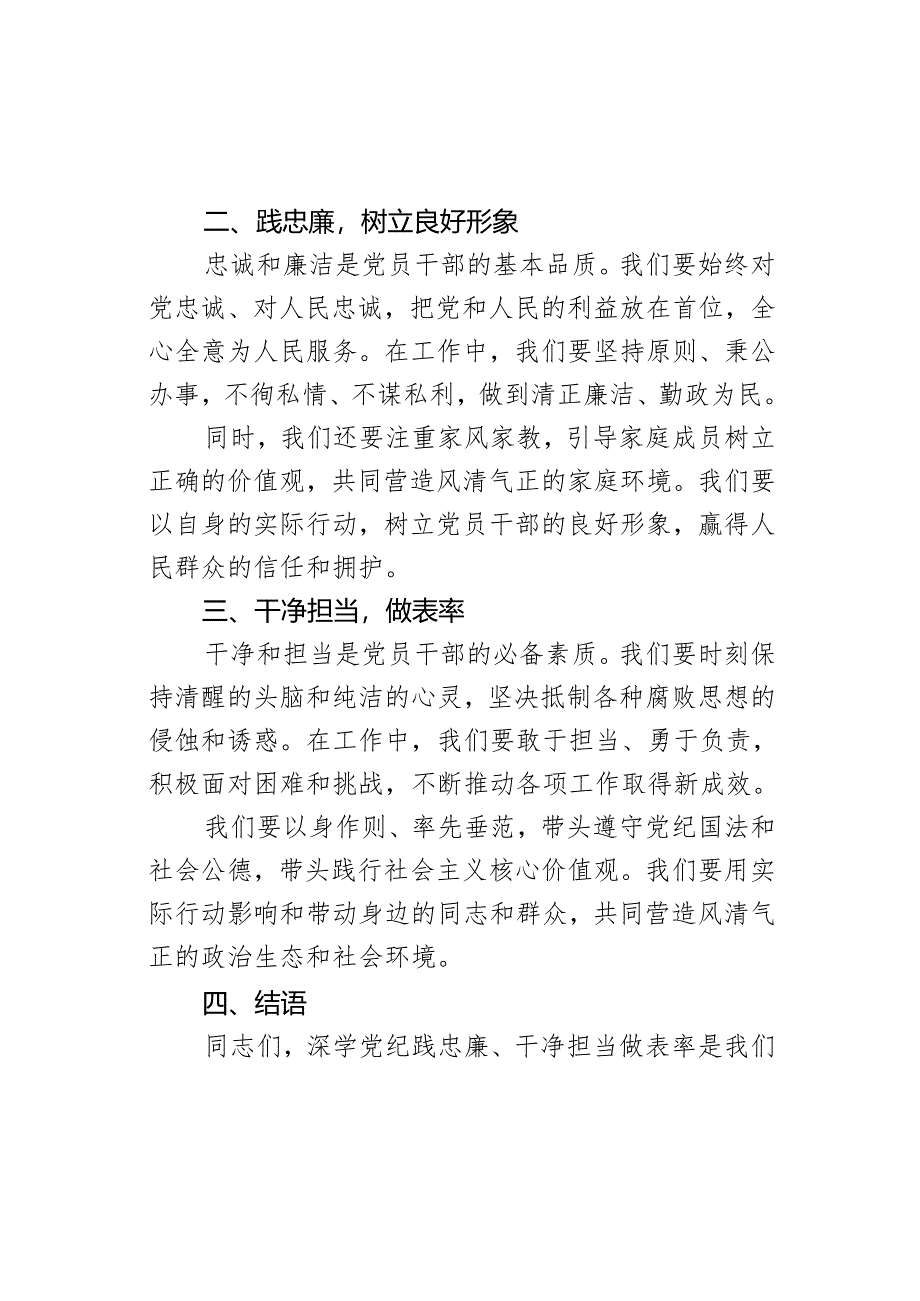 二、践忠廉，树立良好形象
忠诚和廉洁是党员干部的基本品质。我们要始终对
党忠诚、对人民忠诚，把党和人民的利益放在首位，全
心全意为人民服务。在工作中，我们要坚持原则、秉公
办事，不徇私情、不谋私利，做到清正廉洁、勤政为民。
同时，我们还要注重家风家教，引导家庭成员树立
正确的价值观，共同营造风清气正的家庭环境。我们要
以自身的实际行动，树立党员干部的良好形象，赢得人
民群众的信任和拥护。
三、干净担当，做表率
干净和担当是党员干部的必备素质。我们要时刻保
持清醒的头脑和纯洁的心灵，坚决抵制各种腐败思想的
侵蚀和诱惑。在工作中，我们要敢于担当、勇于负责，
积极面对困难和挑战，不断推动各项工作取得新成效。
我们要以身作则、率先垂范，带头遵守党纪国法和
社会公德，带头践行社会主义核心价值观。我们要用实
际行动影响和带动身边的同志和群众，共同营造风清气
正的政治生态和社会环境。
四、结语
同志们，深学党纪践忠廉、干净担当做表率是我们